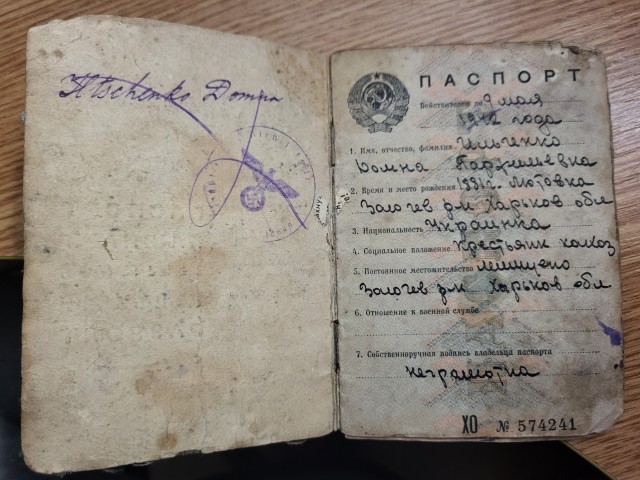 Iltschenko Domna
ПАСПОРТ
Действителен до 9 мая
1942 года
1. Имя, отчество, фамилия Ильченко
Домна
2. Время и место рождения 1881г. Лютовка
Золочев р-н Харьков обл
3. Национальность Украинка
4. Социальное положение крестьянк колхоз
5. Постоянное местожительство
Золочев р-н Харьков обл
6. Отношение к военной службе
7. Собственноручная подпись владельца паспорта
неграмотна
ХО № 574241